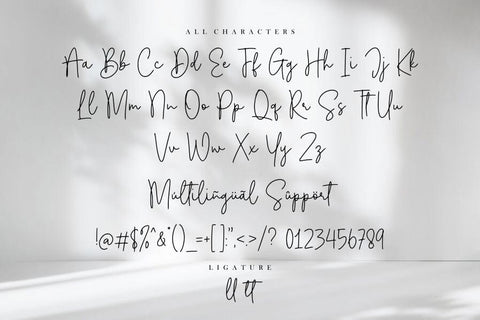 ALL CHARACTERS
Aa Bb Cc Dd Ee Ff Gg Hh Ii Jj Kk
Ll Mm Nn Oo Pp Qq Rr Ss Tt Uu
Vv Ww Xx Yy Zz
Múltilíñgüãl Sûppört
!@#$%^&*()_=+[]:",<.>/? 0123456789
LIGATURE
ll tt